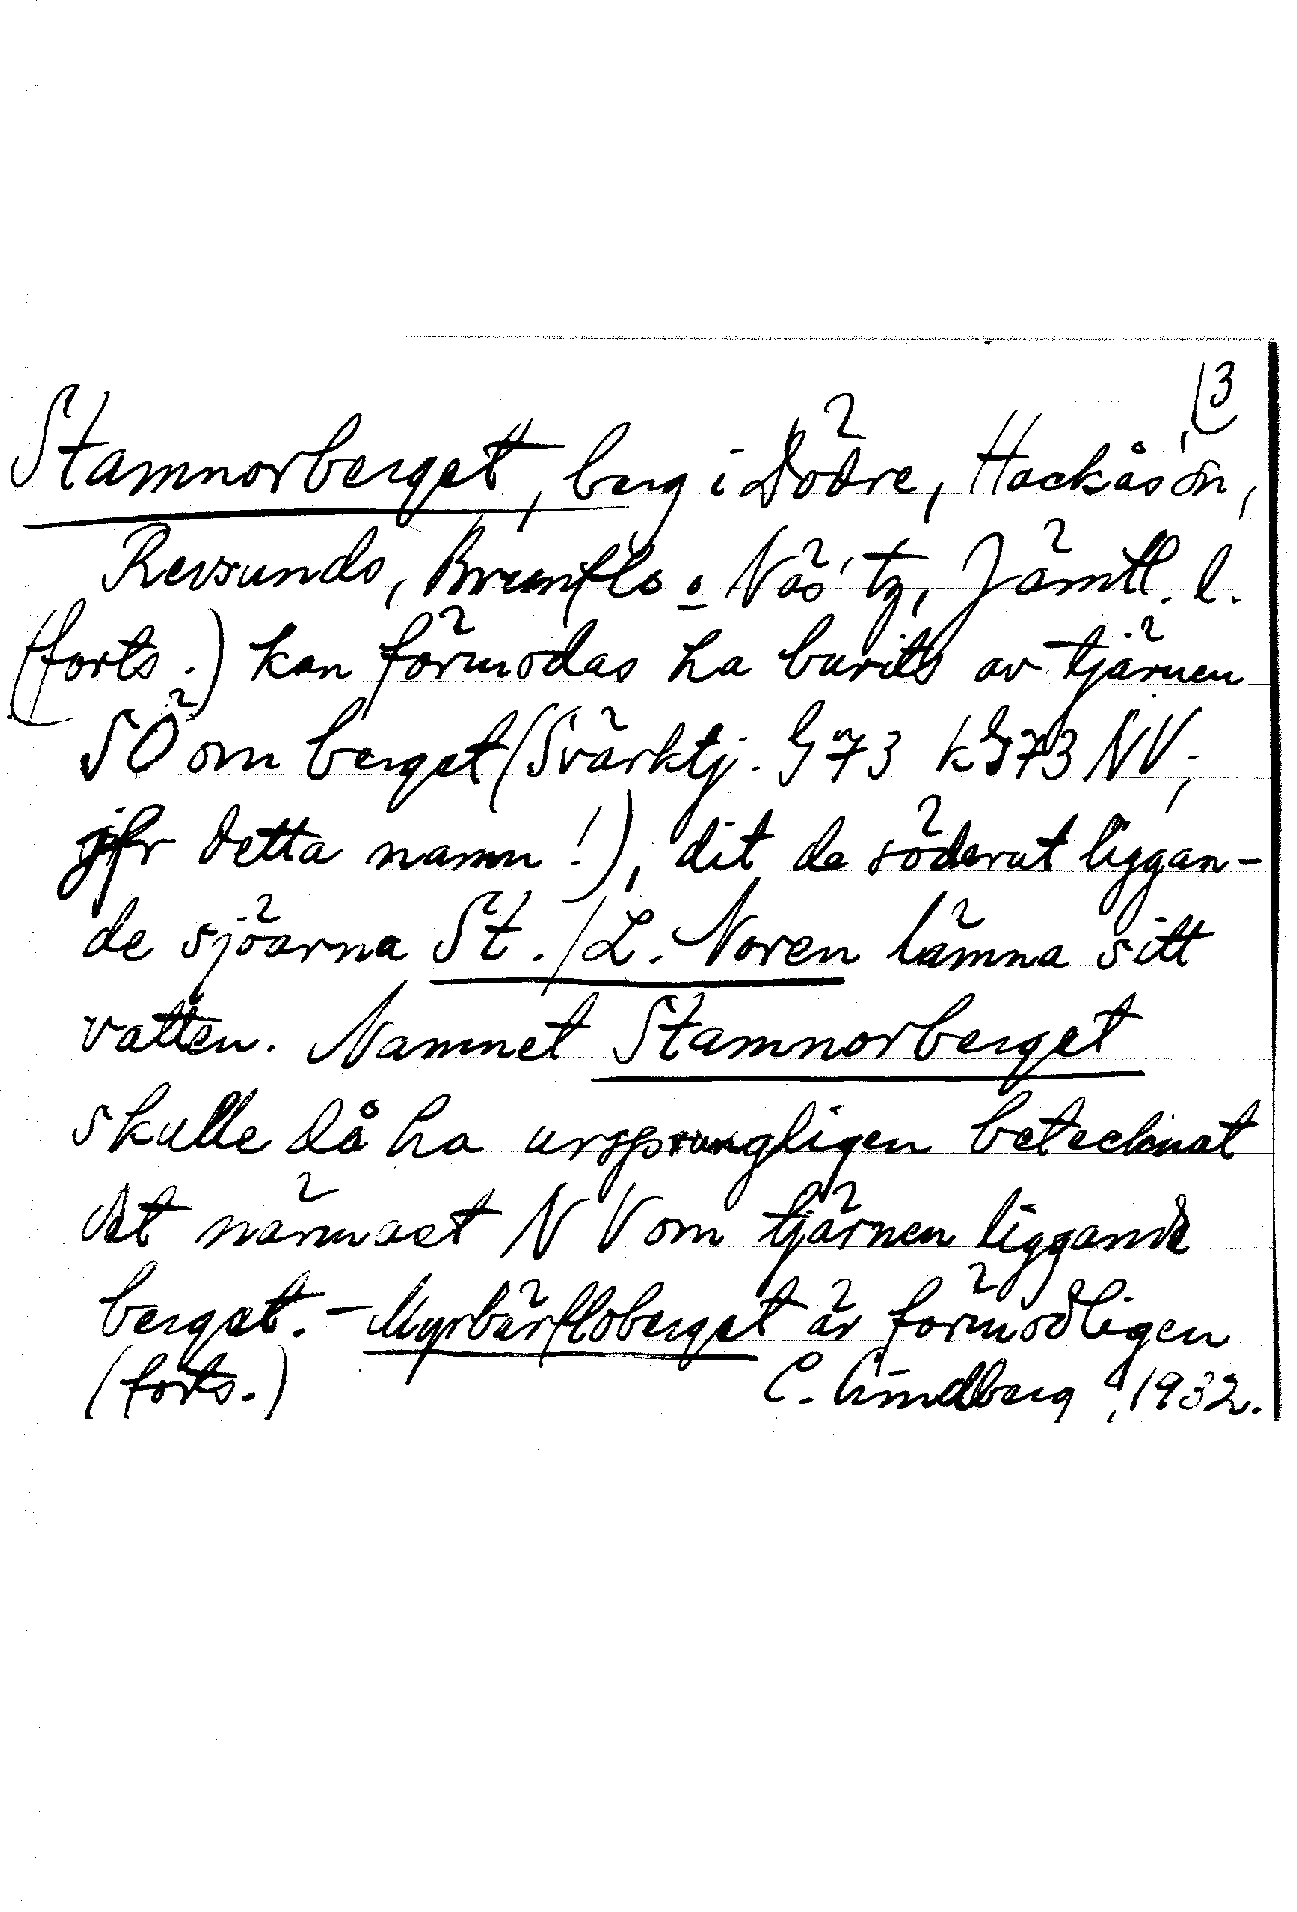 (3
Stamnorberget, berg i Dödre, Hackås sn,
Revsunds, Brunflo o Näs' tg, Jämtl. l.
(forts.) kan förmodas ha burits av tjärnen
SÖ om berget (Svärktj. G73 kG73 NV;
jfr detta namn!), dit de söderut liggan-
de sjöarna St./L. Noren lämna sitt
vatten. Namnet Stamnorberget
skulle då ha ursprungligen betecknat
det närmast NV om tjärnen liggande
berget. – Myrbärfloberget är förmodligen
(forts.) C. Lindberg, 1932.